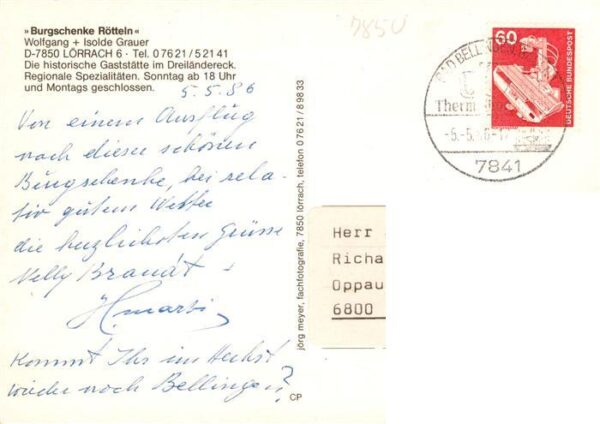 »Burgschenke Rötteln«
Wolfgang + Isolde Grauer
D-7850 LÖRRACH 6 · Tel. 07621/52141
Die historische Gaststätte im Dreiländereck.
Regionale Spezialitäten. Sonntag ab 18 Uhr
und Montags geschlossen.
5.5.86
Von einem Ausflug
nach dieser schönen
Burgschenke, bei rela-
tiv gutem Wetter
die herzlichsten Grüsse
Nelly Brandt +
Kommt Ihr im Herbst
wieder nach Bellingen?
CP
jörg meyer, fachfotografie, 7850 lörrach, telefon 07621/89833
7850
60
DEUTSCHE BUNDESPOST
BAD BELLINGEN
Therm
-5.-5.86-
7841
Herr
Richa
Oppau
6800